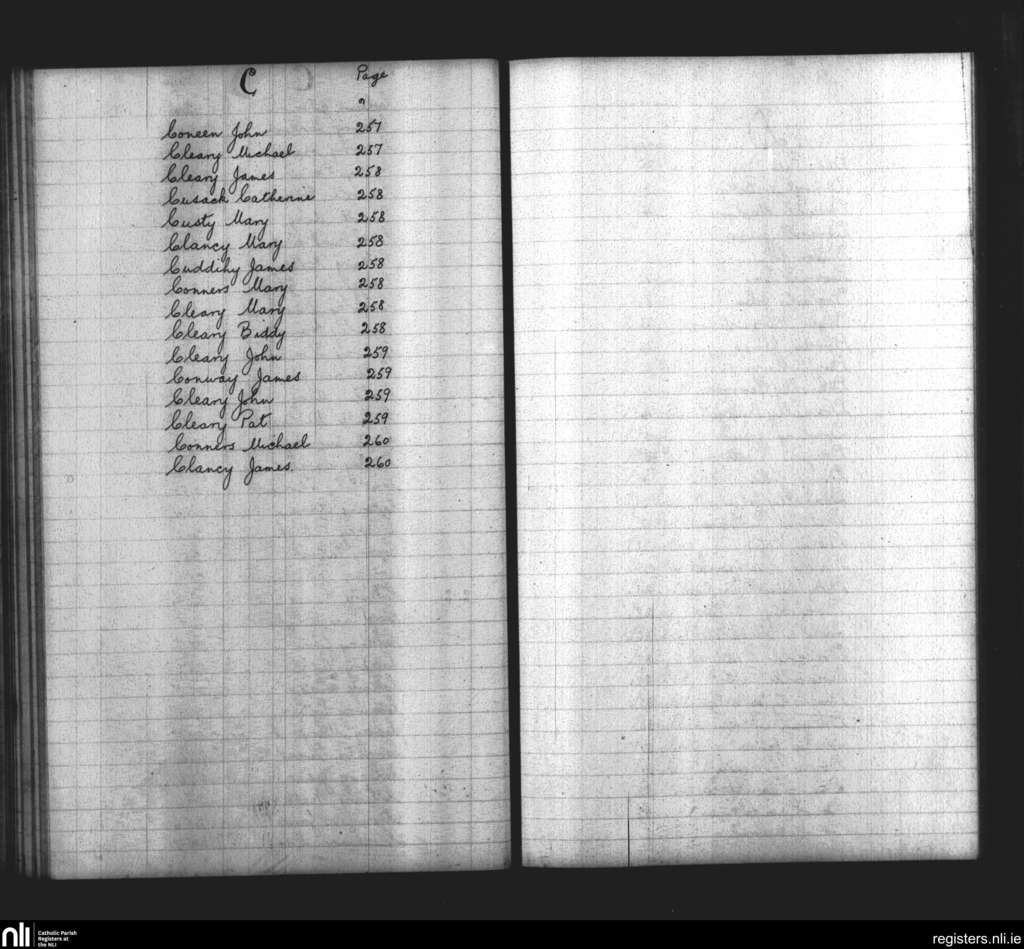 C Page
"
Coneen John 257
Cleary Michael 257
Cleary James 258
Cusack Catherine 258
Custy Mary 258
Clancy Mary 258
Cuddihy James 258
Conners Mary 258
Cleary Mary 258
Cleary Biddy 258
Cleary John 259
Conway James 259
Cleary John 259
Cleary Pat 259
Conners Michael 260
Clancy James. 260
nli Catholic Parish
Registers at
the NLI
registers.nli.ie